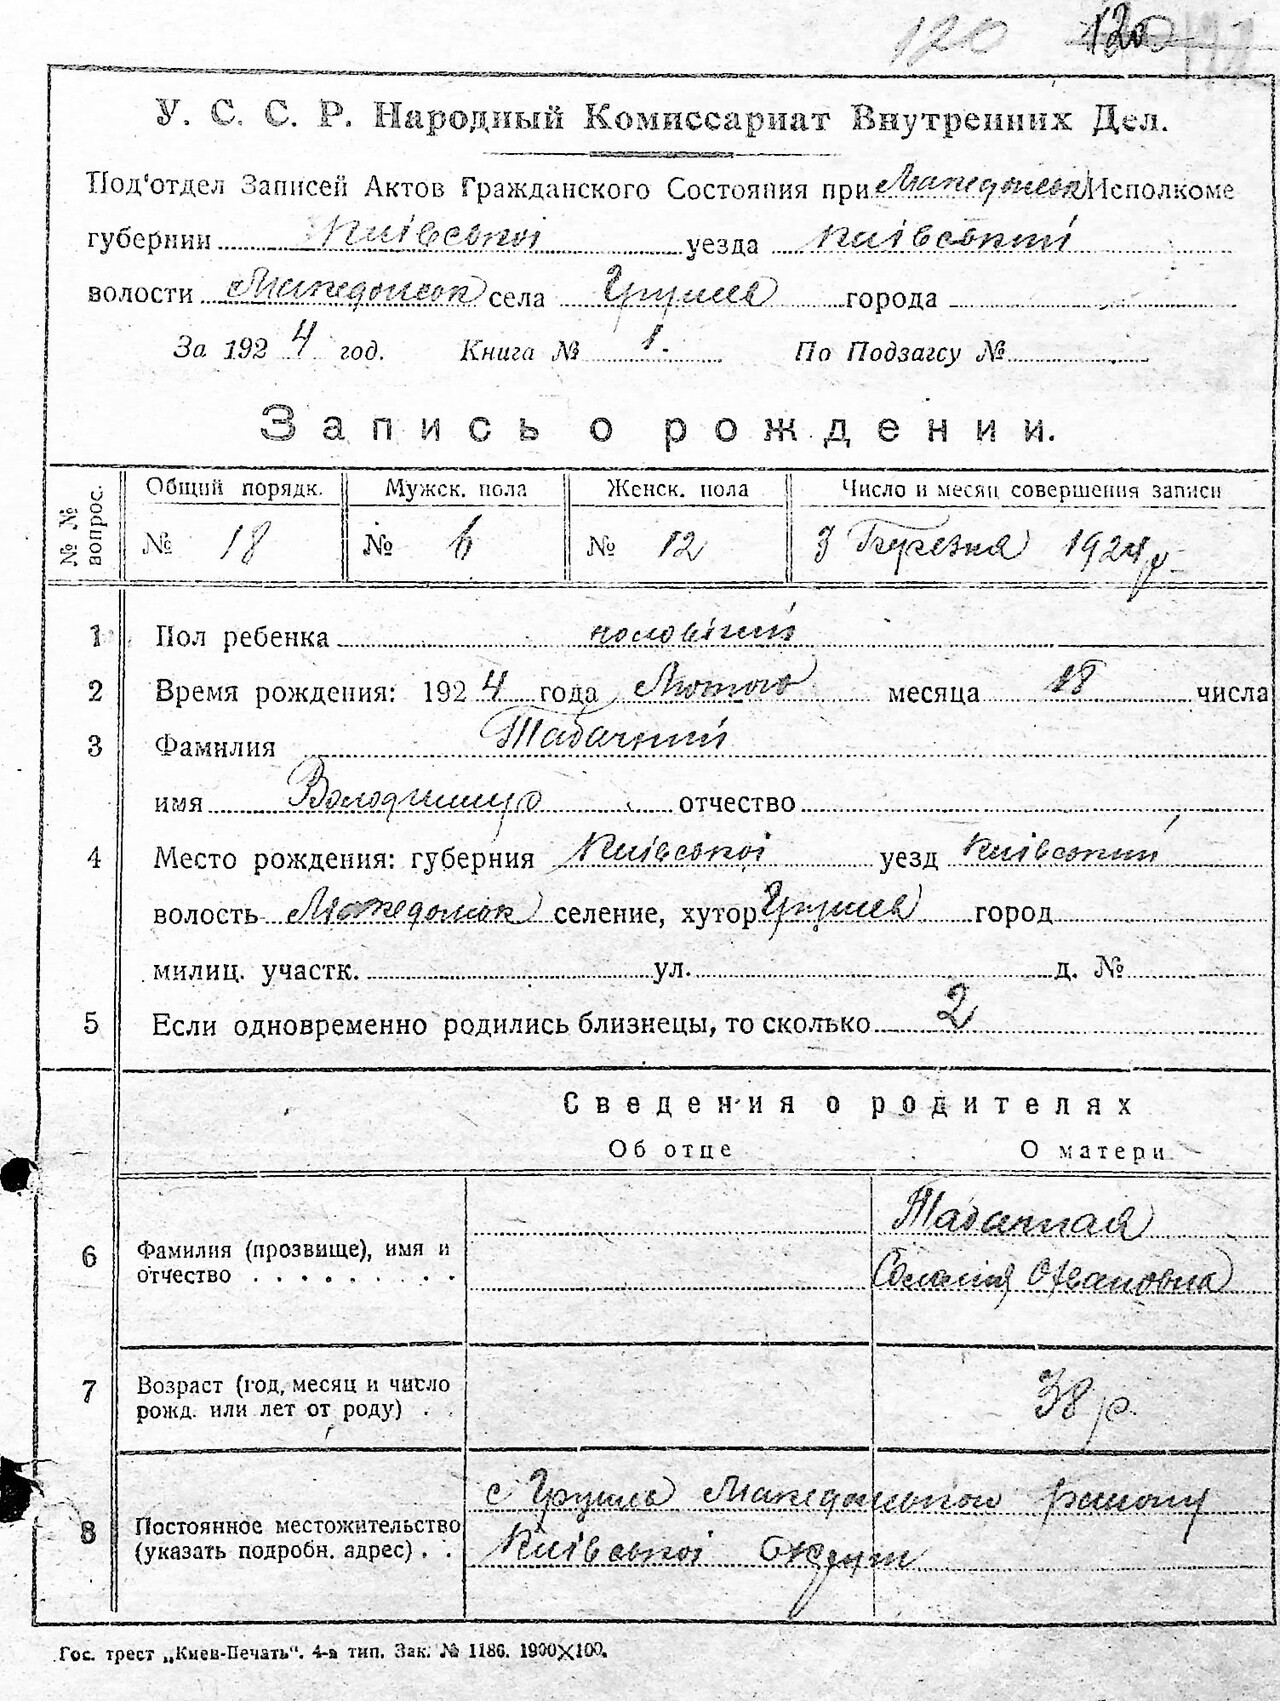 120 120
У. С. С. Р. Народный Комиссариат Внутренних Дел.
Под'отдел Записей Актов Гражданского Состояния при Македонськ Исполкоме
губернии Київської уезда Київський
волости Македонськ села Грушев города
За 1924 год. Книга № 1. По Подзагсу №
Запись о рождении.
№ № вопрос. Общий порядк. Мужск. пола Женск. пола Число и месяц совершения записи
№ 18 № 6 № 12 3 Березня 1924 р
1 Пол ребенка чоловічий
2 Время рождения: 1924 года Лютого месяца 18 числа
3 Фамилия Табачний
имя Володимир отчество
4 Место рождения: губерния Київської уезд Київський
волость Македонськ селение, хутор Грушев город
милиц. участк. ул. д. №
5 Если одновременно родились близнецы, то сколько 2
Сведения о родителях
Об отце О матери
Табачная
6 Фамилия (прозвище), имя и
отчество . . . . . . . . . Ивановна
7 Возраст (год, месяц и число
рожд. или лет от роду) . . 38 р.
с Грушев Македонського району
8 Постоянное местожительство
(указать подробн. адрес) . . Київської Округи
Гос. трест „Киев-Печать“. 4-я тип. Зак. № 1186. 1900×100.